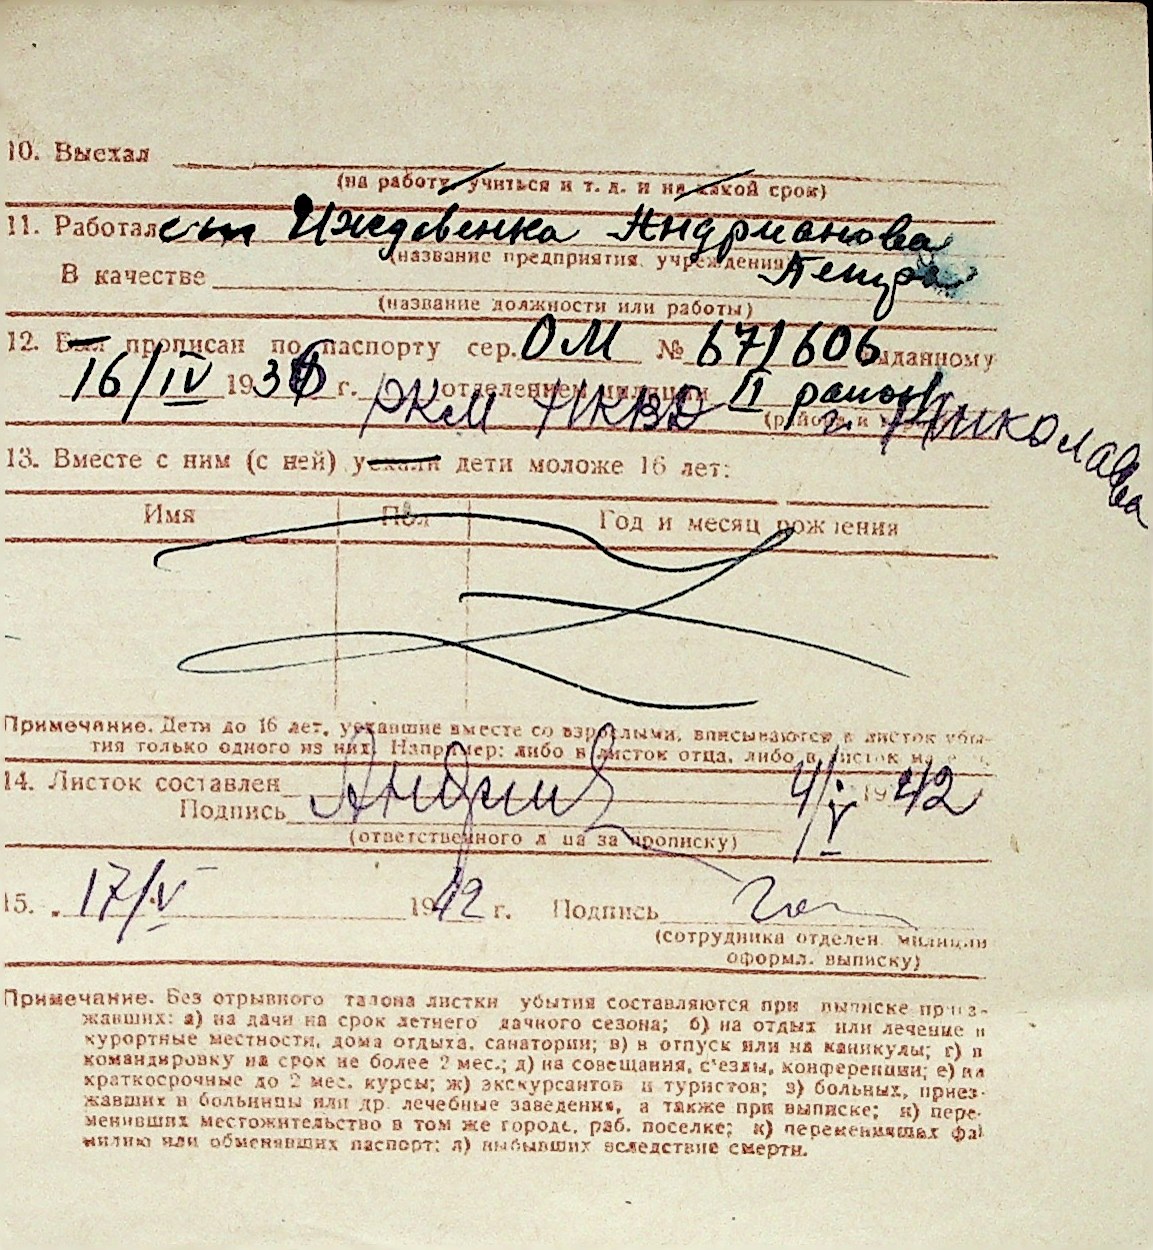 10. Выехал
(на работу, учиться и т. д. и на какой срок)
11. Работал Иждивенка Андрианова
(название предприятия, учреждения)
Петра
В качестве
(название должности или работы)
12. Был прописан по паспорту сер. ОМ № 671606 выданному
16/IV 1936 г. отделением милиции II района
РКМ НКВД г. Николаева
(района и
13. Вместе с ним (с ней) уехали дети моложе 16 лет:
Имя Пол Год и месяц рождения
Примечание. Дети до 16 лет, уехавшие вместе со взрослыми, вписываются в листок убы-
тия только одного из них. Например: либо в листок отца, либо в листок
14. Листок составлен 4/V 1942
Подпись
(ответственного лица за прописку)
15. 17/V 1942 г. Подпись
(сотрудника отделен. милиции
оформл. выписку)
Примечание. Без отрывного талона листки убытия составляются при выписке приез-
жавших: а) на дачи на срок летнего дачного сезона; б) на отдых или лечение в
курортные местности, дома отдыха, санатории; в) в отпуск или на каникулы; г) в
командировку на срок не более 2 мес.; д) на совещания, с'езды, конференции; е) на
краткосрочные до 2 мес. курсы; ж) экскурсантов и туристов; з) больных, приез-
жавших в больницы или др. лечебные заведения, а также при выписке; и) пере-
менивших местожительство в том же городе, раб. поселке; к) переменивших фа-
милию или обменявших паспорт; л) выбывших вследствие смерти.